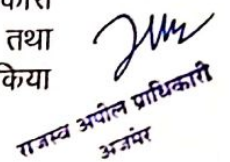 तथा
किया
राजस्व अपील प्राधिकारी
अजमेर